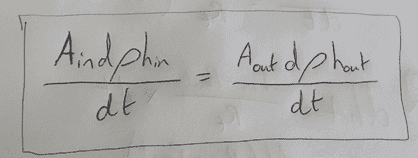 A_in d ρ h_in / dt = A_out d ρ h_out / dt